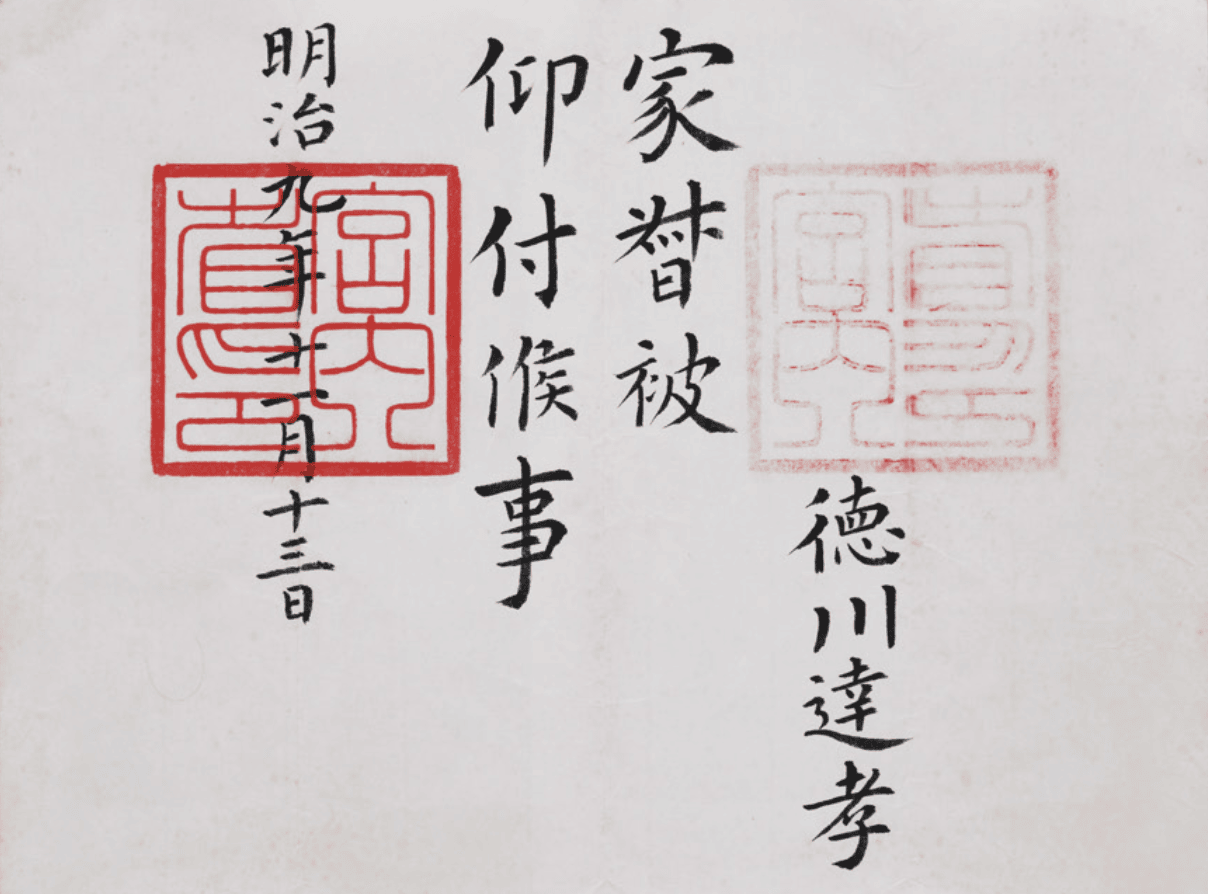 徳川達孝
家督被
仰付候事
明治九年十一月十三日
宮内
省印